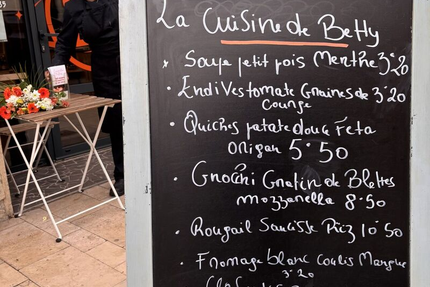 La Cuisine de Betty
Soupe petit pois Menthe 3€20
Endives tomate Graines de 3€20
Courge
Quiches patate douce Feta
origan 5€50
Gnocchi Gratin de Blettes
mozzarella 8.50
Rougail Saucisse Riz 10€50
Fromage blanc Coulis Mangue
3.20